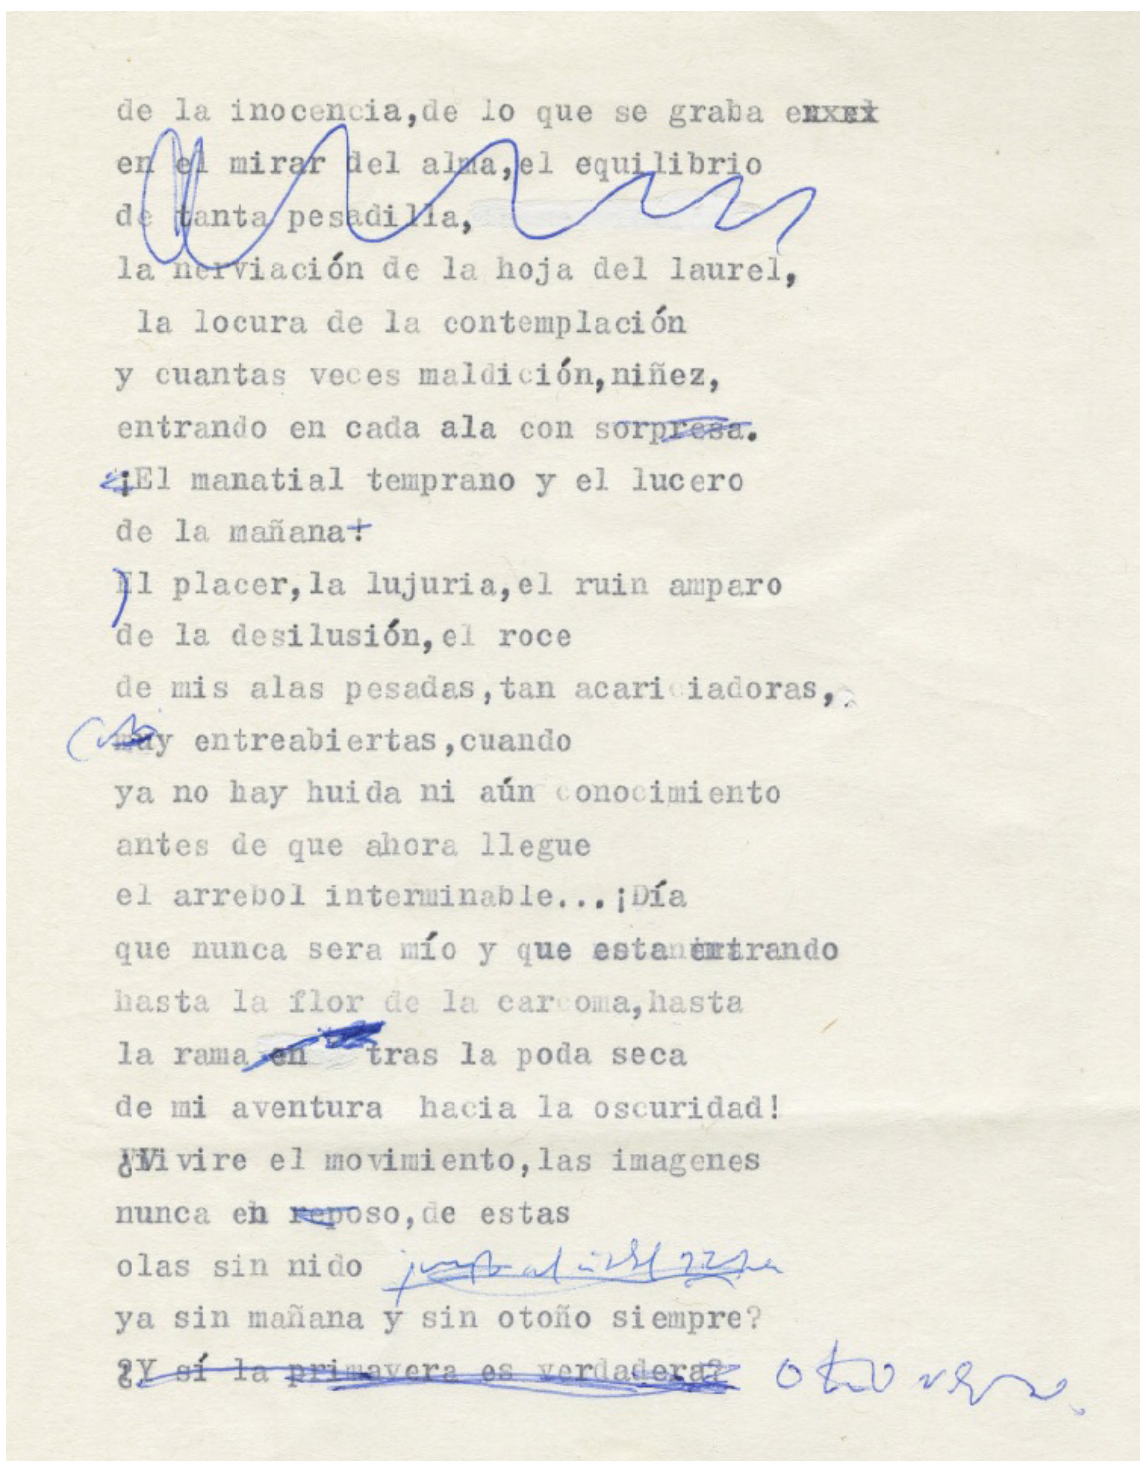 de la inocencia,de lo que se graba enxel
en el mirar del alma,el equilibrio
de tanta pesadilla,
la nerviación de la hoja del laurel,
la locura de la contemplación
y cuantas veces maldición,niñez,
entrando en cada ala con sorpresa.
¡El manatial temprano y el lucero
de la mañana!
El placer,la lujuria,el ruin amparo
de la desilusión,el roce
de mis alas pesadas,tan acariciadoras,
muy entreabiertas,cuando
ya no hay huida ni aún conocimiento
antes de que ahora llegue
el arrebol interminable...¡Día
que nunca sera mío y que esta entrando
hasta la flor de la carcoma,hasta
la rama en tras la poda seca
de mi aventura hacia la oscuridad!
¿Vivire el movimiento,las imagenes
nunca en reposo,de estas
olas sin nido
ya sin mañana y sin otoño siempre?
¿Y sí la primavera es verdadera?